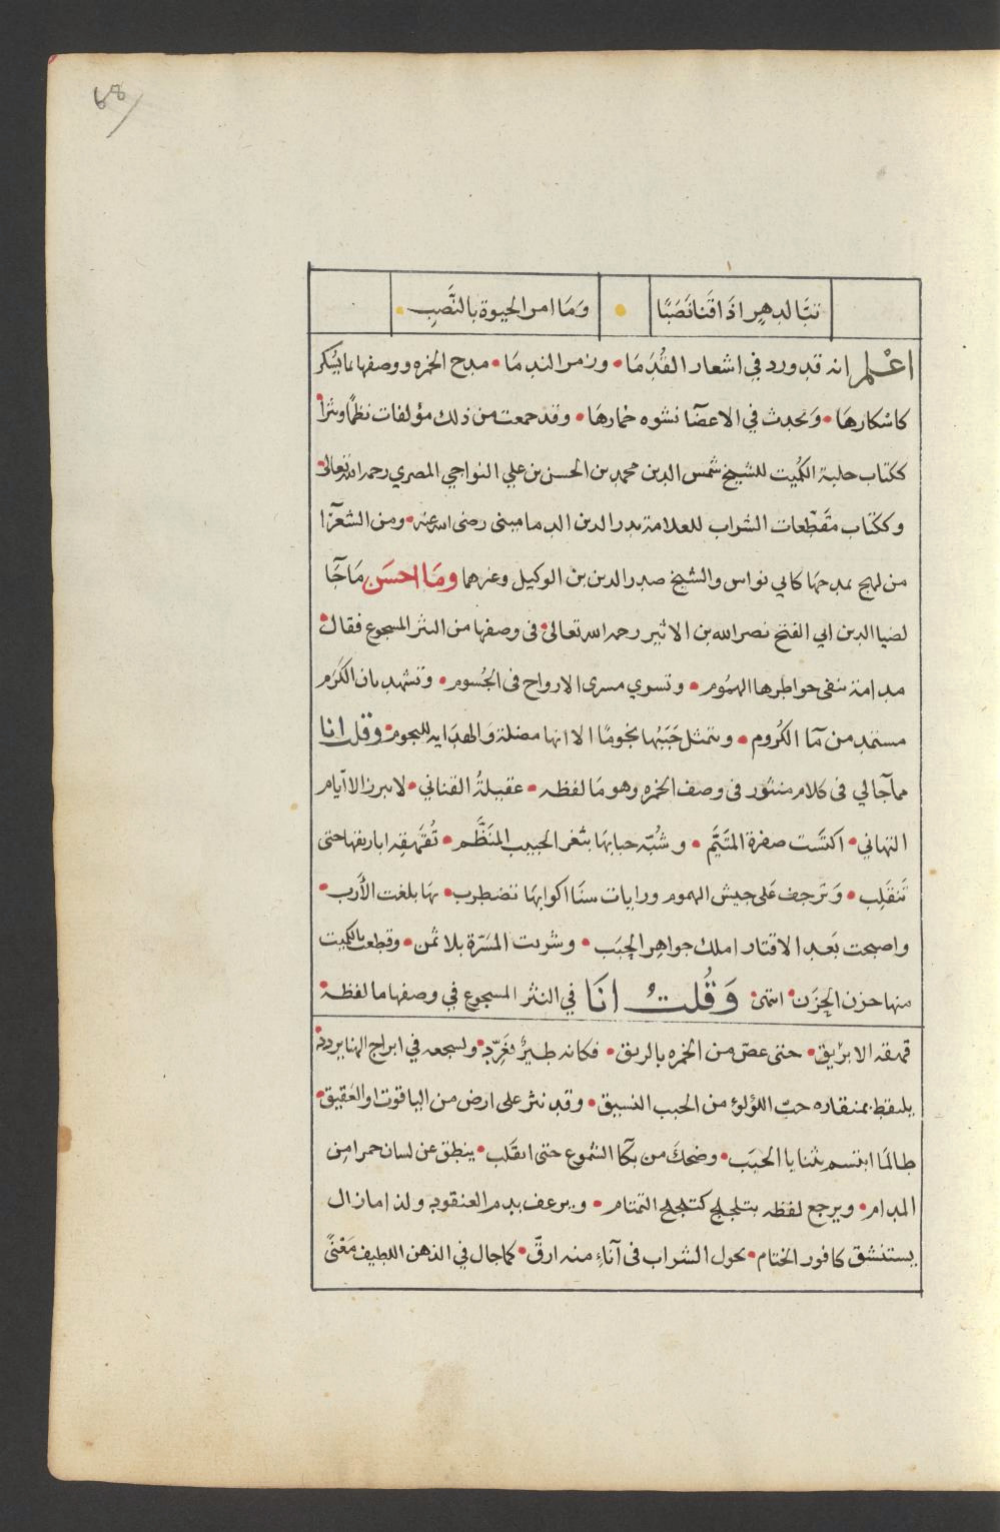 68
تبَّا لدهرٍ اذَاقَنا نَصَبًا • وَمَا امر الحيوة بالنَّصَبِ •
اعْلم انه قد ورد في اشعار القُدَمَا • وزمر الندمَا • مدح الخمره ووصفها بما يُسكر
كاسْكارهَا • وَيحدث في الاعضَا نشوه خمارهَا • وقد جمعت من ذلك مؤلفات نظمًا ونثرًا •
ككتاب حلبة الكُميت للشيخ شمس الدين محمد بن الحسن بن علي النواجي المصري رحمه الله تعالى •
وككتاب مقَطّعات الشراب للعلامة بدر الدين الدماميني رضى الله عنه • ومن الشعرَا
من لهج بمدحهَا كابي نواس والشيخ صدر الدين بن الوكيل وغيرهما ومَا احسَن مَا جَا
لضيا الدين ابي الفتح نصر الله بن الاثير رحمه الله تعالى • فى وصفها من النثر المسجوع فقال •
مدامة تنفى خواطرها الهمُوم • وتسوي مسرى الارواح فى الجُسوم • وتشهد بان الكَرَم
مستمد من مَا الكُروم • ويتمثل حَبَبُها نجومًا الا انها مضلة وَالهدَايه للنجوم • وقلت انا
مما جَا لي فى كلام منثور فى وصف الخمره وهو مَا لفظه • عقيلةُ القناني • لا تبرز الا ايَّام
التهاني • اكتسَت صفرة المتَيَّم • وشُبّه حبابهَا بثغر الحبيب المنَظَّم • تُقَهقِه اباريقها حتى
تَنقَلِب • وَترجف عَلى جيش الهموم ورايات سنَا اكوابهَا تضطرب • بهَا بلغت الأَرب •
واصبحت بَعد الاقتار املك جواهِر الحبَب • وشربت المسَرّة بلا ثمن • وقطعت بالكميت
منها حزن الحِزَن • انتهى وَقُلتُ انَا في النثر المسجوع في وصفها ما لفظه •
قهقه الابرِيق • حتى غصّ من الخمره بالريق • فكانه طيرٌ تغَرِّد • ولسجعه في ابراج الهنا يردد •
يلتقط بمنقاره حبّ اللؤلوء من الحبب النسيق • وقد نثر على ارض من الياقوت او العَقيق •
طالمَا ابتسم بثنايا الحَبَب • وضحكَ من بكَا الشموع حتى انقَلب • ينطق عن لسان حمرا مِن
المدام • ويرجع لفظه بتلجلج كتلجلج التمتام • ويرعف بدم العنقود ولذا ما زال
يستنشق كافور الختام • يحول الشراب فى آناءٍ منه ارقّ • كما جال في الذهن اللطيف مَعْنىً